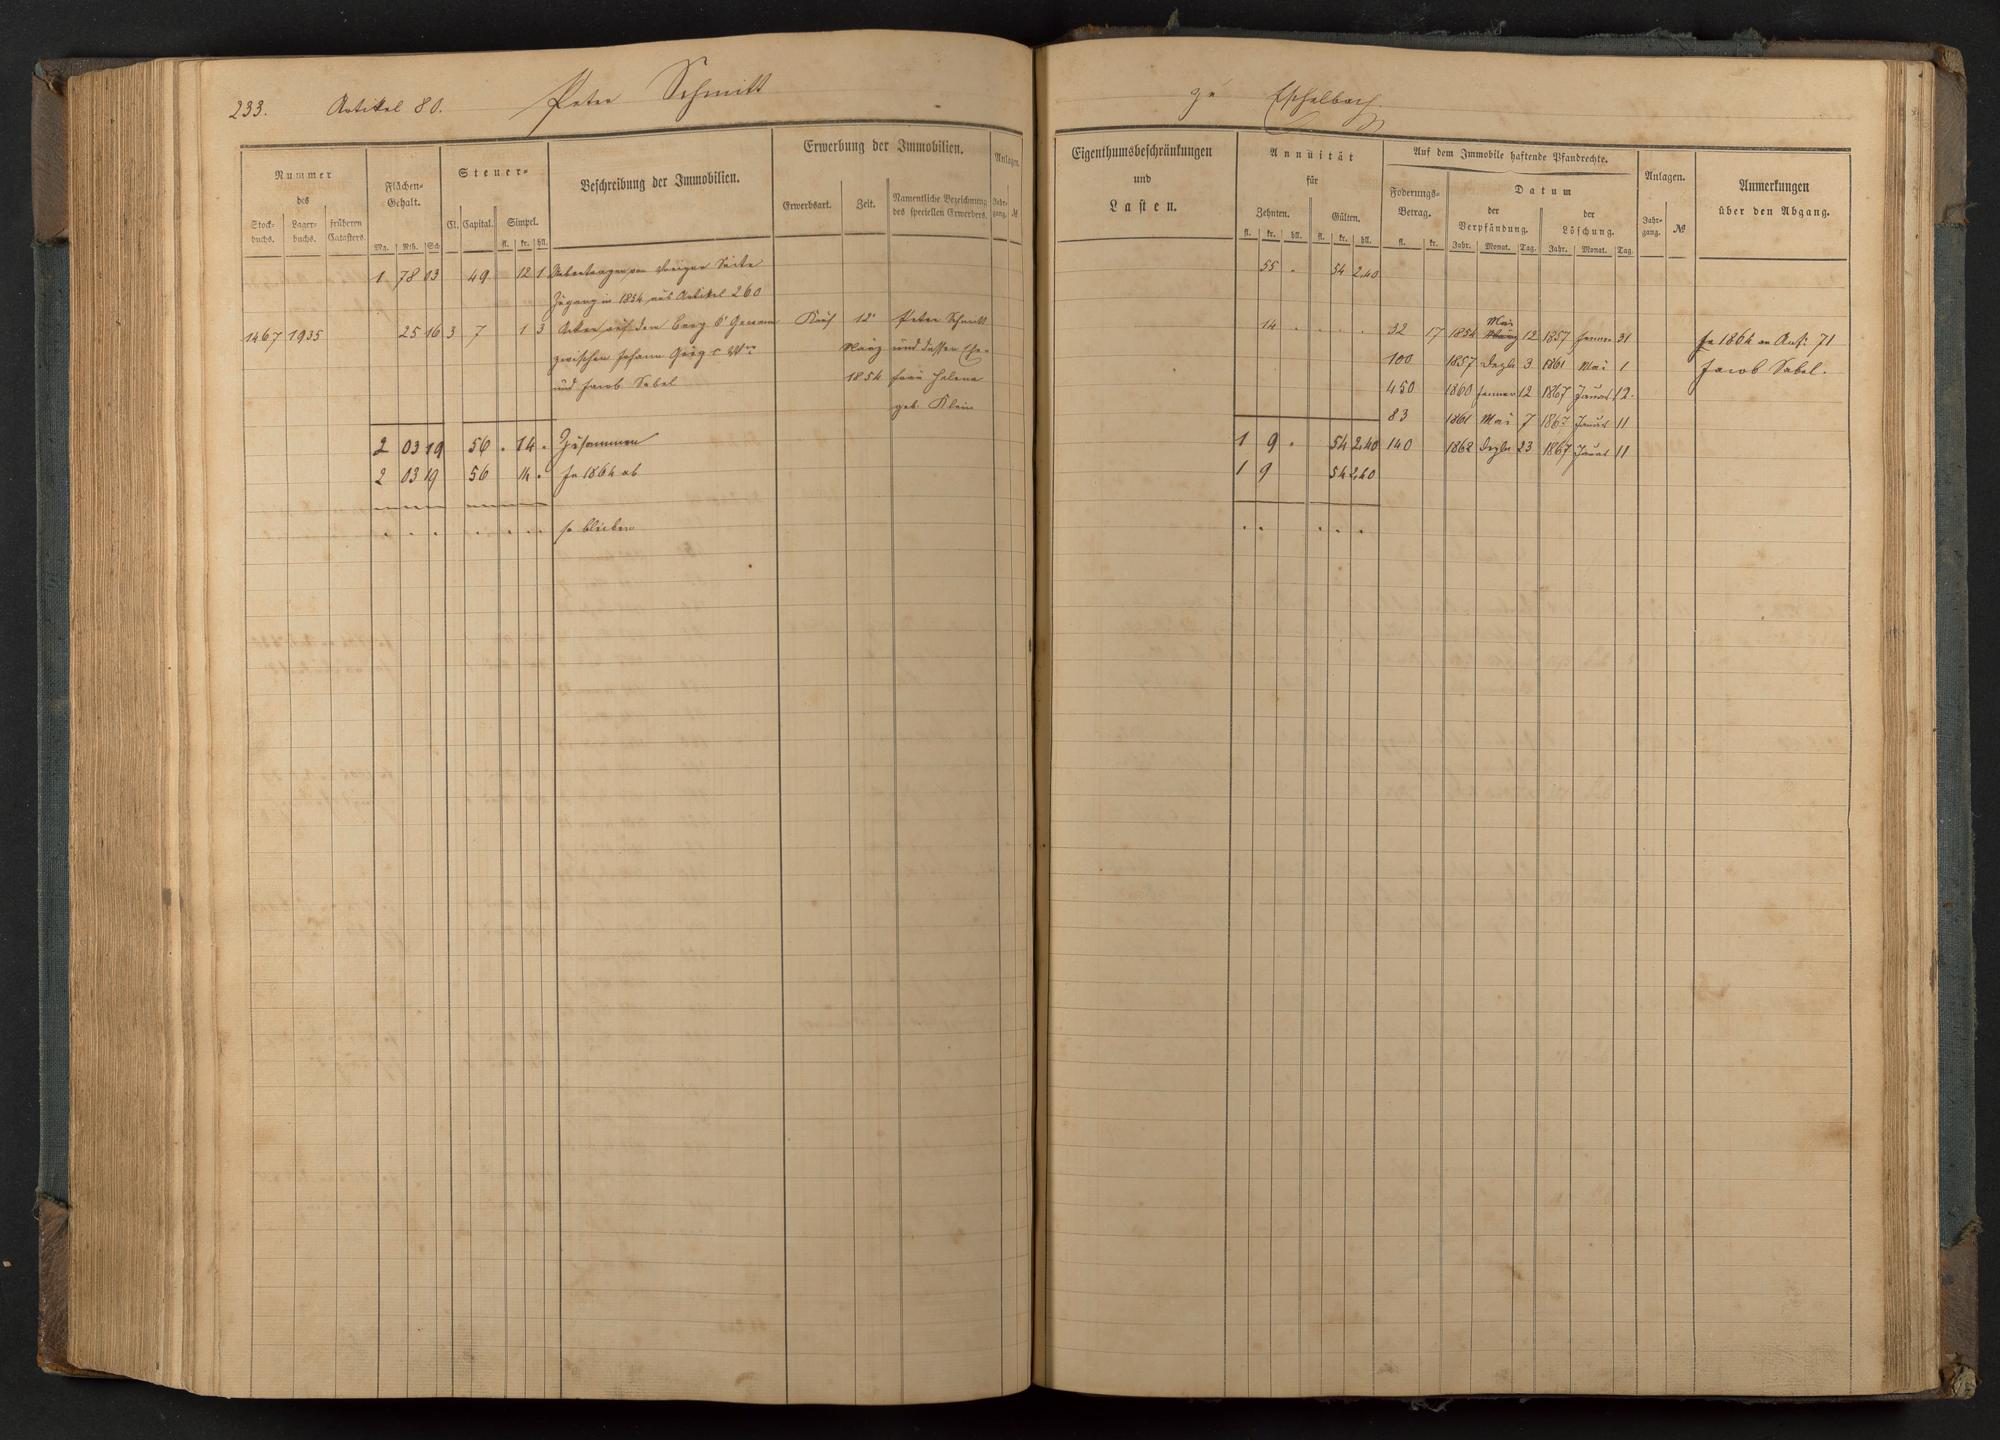 233. Artikel 80. Peter Schmitt zu Eschelbach.
Nummer des
Stock-buchs. Lager-buchs. früheren Catasters.
Flächen-Gehalt.
Mg. Rth. Sch.
Steuer-
Cl. Capital. Simpel.
fl. kr. hll.
Beschreibung der Immobilien.
Erwerbung der Immobilien.
Erwerbsart. Zeit. Namentliche Bezeichnung des speciellen Erwerbers.
Anlagen.
Jahr-gang. №
Eigenthumsbeschränkungen
und
Lasten.
Annuität
für
Zehnten. Gülten.
fl. kr. hll. fl. kr. hll.
Auf dem Immobile haftende Pfandrechte.
Foderungs-Betrag.
fl. kr.
Datum
der Verpfändung. der Löschung.
Jahr. Monat. Tag. Jahr. Monat. Tag.
Anlagen.
Jahr-gang. №
Anmerkungen
über den Abgang.
1 78 03 49 12 1 Uebertragen von voriger Seite 55 . 54 2,40
Zugang in 1854 aus Artikel 260
1467 1935 25 16 3 7 1 3 Acker auf dem Berg 6r Gewann Kauf 12r Peter Schmitt 14 . . . . 32 17 1854 März Mai 12 1857 Jenner 31 In 1864 an Art: 71
zwischen Johann Georg März und dessen Ehe- 100 1857 Dezbr 3 1861 Mai 1 Jacob Sabel.
und Jacob Sabel 1854 frau Helena 450 1860 Jenner 12 1867 Januar 12.
geb. Klein 83 1861 Mai 7 1867 Januar 11
2 03 19 56 . 14 . Zusammen 1 9 . 54 2,40 140 1862 Dezbr 23 1867 Januar 11
2 03 19 56 14 . In 1864 ab 1 9 54 2,40
. . . . . . . so bleiben . . . . .